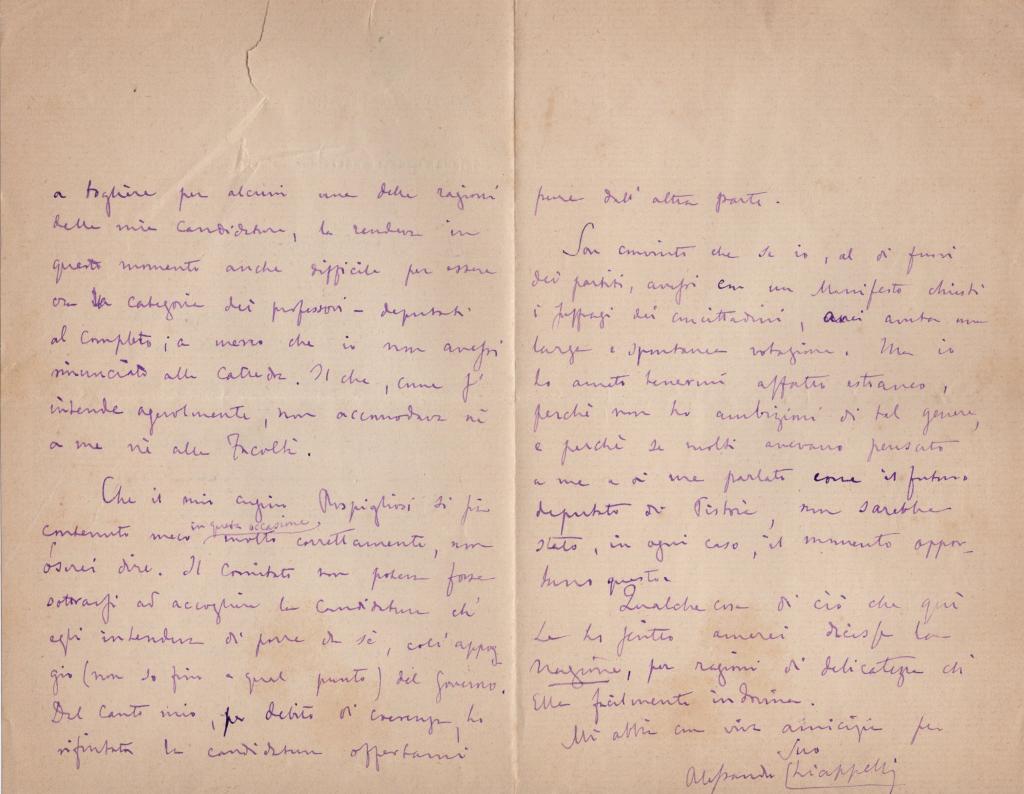 a togliere per alcuni una delle ragioni
della mia candidatura, la rendeva in
questo momento anche difficile per essere
ora la categoria dei professori-deputati
al completo; a meno che io non avessi
rinunciato alla Cattedra. Il che, come s'
intende agevolmente, non accomodava nè
a me nè alla Facoltà.
Che il mio cugino Rospigliosi si sia
contenuto meco in questa occasione, molto correttamente, non
oserei dire. Il Comitato non poteva forse
sottrarsi ad accogliere la candidatura ch'
egli intendeva di porre da sè, coll'appog
gio (non so fino a qual punto) del Governo.
Dal canto mio, per debito di coerenza, ho
rifiutata la candidatura offertami
pure dall'altra parte.
Son convinto che se io, al di fuori
dei partiti, avessi con un Manifesto chiesti
i suffragi dei concittadini, avrei avuta una
larga e spontanea votazione. Ma io
ho amato tenermi affatto estraneo,
perchè non ho ambizioni di tal genere,
e perchè se molti avevano pensato
a me e di me parlato come il futuro
deputato di Pistoia, non sarebbe
stato, in ogni caso, il momento oppor-
tuno questo.
Qualche cosa di ciò che qui
Le ho scritto amerei dicesse la
Nazione, per ragioni di delicatezza ch
Ella facilmente indovina.
Mi abbia con viva amicizia per
Suo
Alessandro Chiappelli